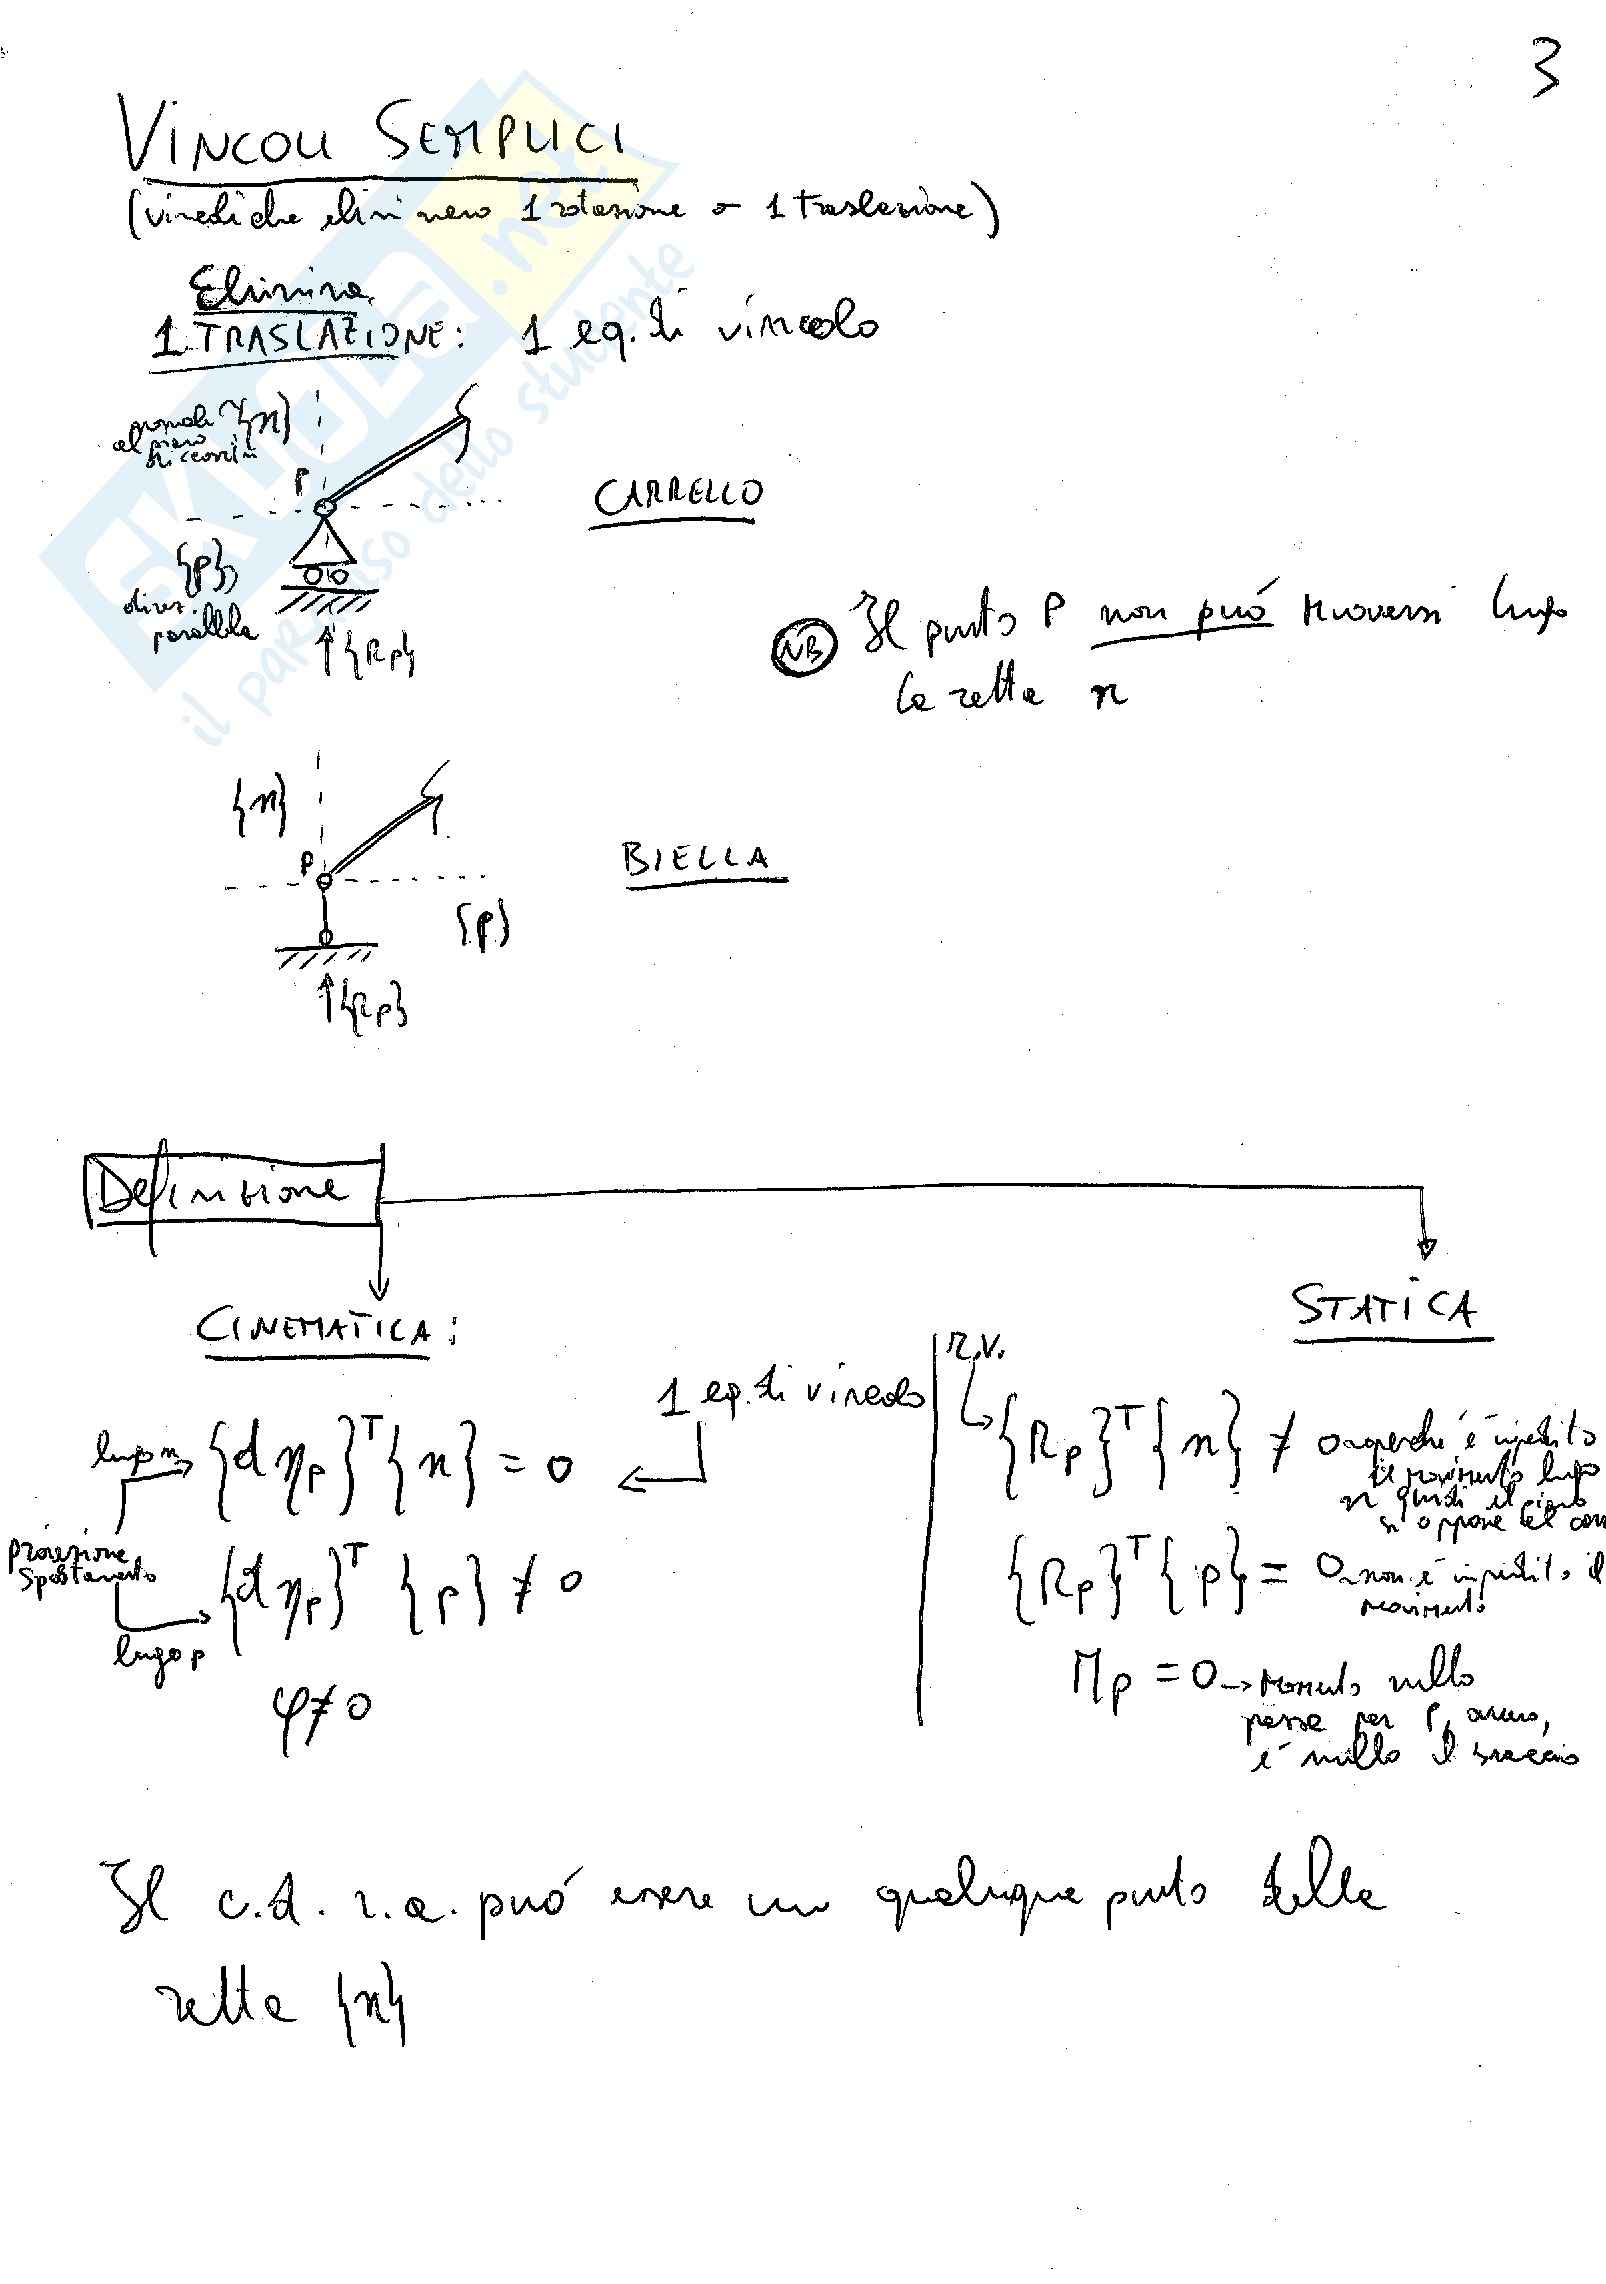 3
VINCOLI SEMPLICI
(vincoli che eliminano 1 rotazione o 1 traslazione)
Elimina
1 TRASLAZIONE: 1 eq. di vincolo
normale {n}
al piano
di
P
CARRELLO
{p}
direz.
parallela
{Rp}
NB Il punto P non può muoversi lungo
la retta n
{n}
P
BIELLA
{p}
{Rp}
Definizione
CINEMATICA:
STATICA
r.v.
1 eq. di vincolo
lungo n {dηp}ᵀ{n} = 0
{Rp}ᵀ{n} ≠ 0 → perché è impedito
il movimento lungo
n quindi il piano
si oppone al carr
proiezione
spostamento
{dηp}ᵀ{p} ≠ 0
lungo p
{Rp}ᵀ{p} = 0 → non è impedito il
movimento
φ ≠ 0
Mp = 0 → momento nullo
passa per P,
è nullo il braccio
Il c.d.r.a. può essere un qualunque punto della
retta {n}
EXULE.net
il paradiso dello studente